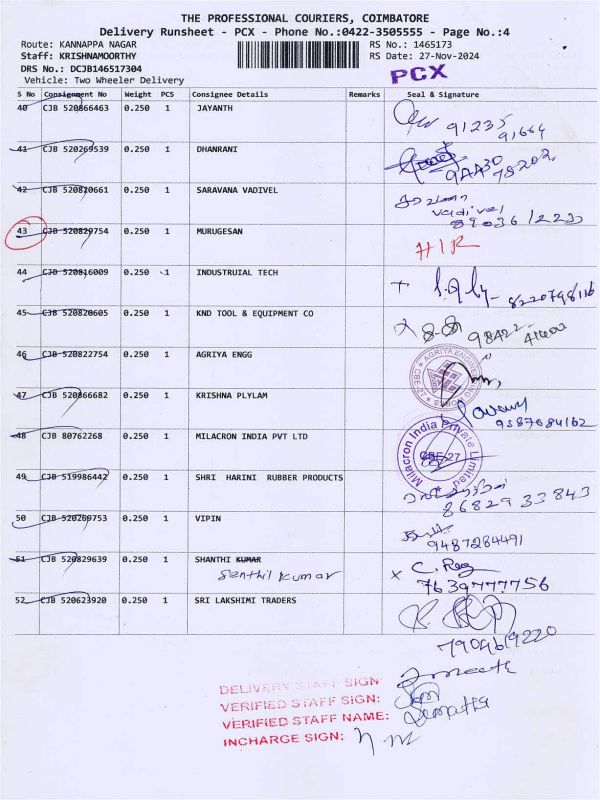 THE PROFESSIONAL COURIERS, COIMBATORE
Delivery Runsheet - PCX - Phone No.:0422-3505555 - Page No.:4
Route: KANNAPPA NAGAR
RS No.: 1465173
Staff: KRISHNAMOORTHY
RS Date: 27-Nov-2024
DRS No.: DCJB146517304
PCX
Vehicle: Two Wheeler Delivery
S No Consignment No Weight PCS Consignee Details Remarks Seal & Signature
40 CJB 520866463 0.250 1 JAYANTH
91235 91664
41 CJB 520269539 0.250 1 DHANRANI
78202
42 CJB 520820661 0.250 1 SARAVANA VADIVEL
சரவண
vadivel
43 CJB 520829754 0.250 1 MURUGESAN
44 CJB 520816009 0.250 1 INDUSTRUIAL TECH
8220798116
45 CJB 520820605 0.250 1 KND TOOL & EQUIPMENT CO
98422
46 CJB 520822754 0.250 1 AGRIYA ENGG
CBE-27
47 CJB 520866682 0.250 1 KRISHNA PLYLAM
9587084162
48 CJB 80762268 0.250 1 MILACRON INDIA PVT LTD
Milacron India Private Limited
CBE-27
49 CJB 519986442 0.250 1 SHRI HARINI RUBBER PRODUCTS
86829 33843
50 CJB 520269753 0.250 1 VIPIN
9487284491
51 CJB 520829639 0.250 1 SHANTHI KUMAR
Senthil kumar
x C. Reg
7639777756
52 CJB 520623920 0.250 1 SRI LAKSHIMI TRADERS
7904619220
DELIVERY STAFF SIGN:
VERIFIED STAFF SIGN:
VERIFIED STAFF NAME:
INCHARGE SIGN: